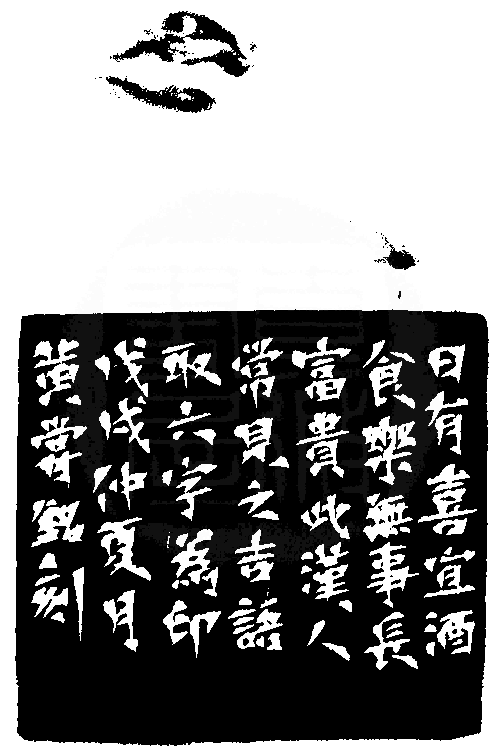 日有喜宜酒
食樂無事長
富貴此漢人
常見之吉語
取六字為印
戊戌仲夏月
黃嘗銘刻